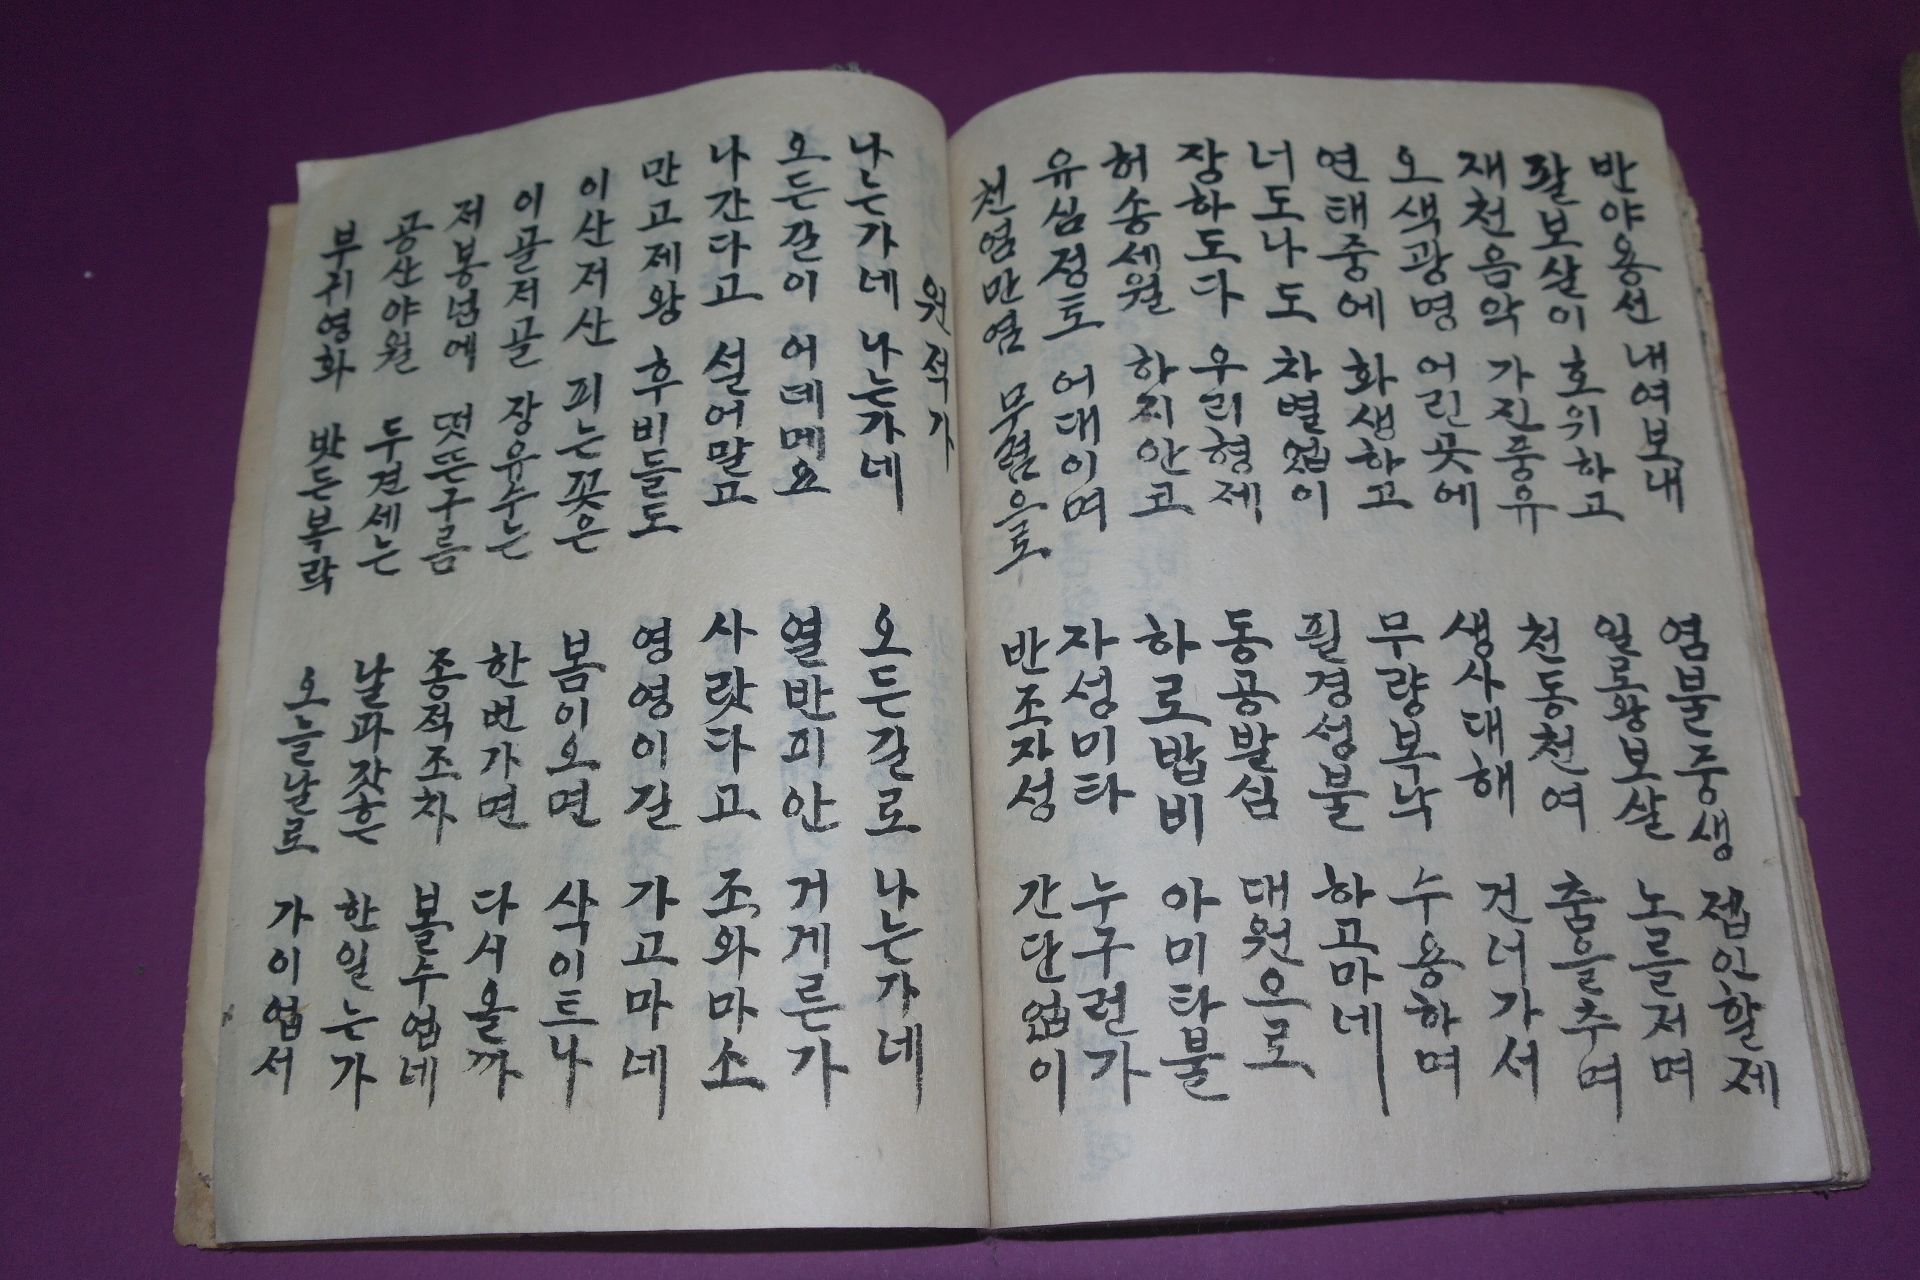 반야용선 내여보내 염불중생 접인할제
팔보살이 호위하고 일로왕보살 노를저며
재천음악 가진풍유 천동천여 춤을추며
오색광명 어린곳에 생사대해 건너가서
연태중에 화생하고 무량복낙 수용하며
너도나도 차별업이 필경성불 하고마네
장하도다 우리형제 동공발심 대원으로
허송세월 하지안코 하로밥비 아미타불
유심정토 어대이며 자성미타 누구런가
천염만염 무렴으로 반조자성 간단업이
원적가
나는가네 나는가네 오든길로 나는가네
오든길이 어데메요 열반피안 거게른가
나간다고 설어말고 사랏다고 조와마소
만고제왕 후비들도 영영이길 가고마네
이산저산 피는꽃은 봄이오면 삭이트나
이골저골 장유수는 한번가면 다시올까
저봉넘에 떳뜬구름 종적조차 볼수업네
공산야월 두견세는 날과갓흔 한일는가
부귀영화 밧든복락 오늘날로 가이업서